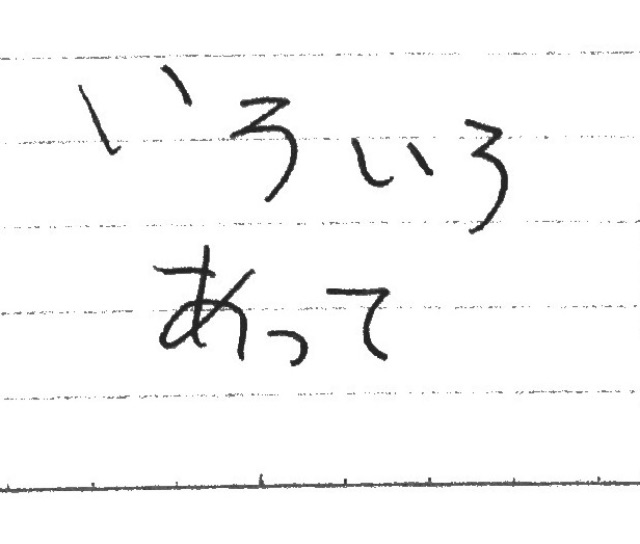 いろいろ
あって